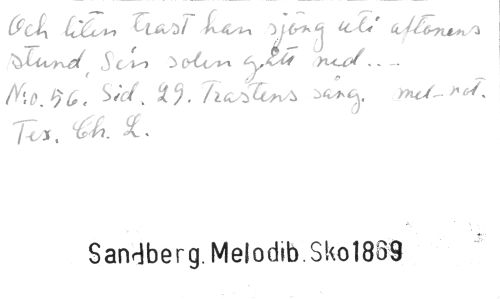 Och liten trast han sjöng uti aftonens
stund, Sén solen gått ned....
N:o. 56. Sid. 29. Trastens sång. mel-not.
Tex. Ch. L.
Sandberg. Melodib. Sko1869